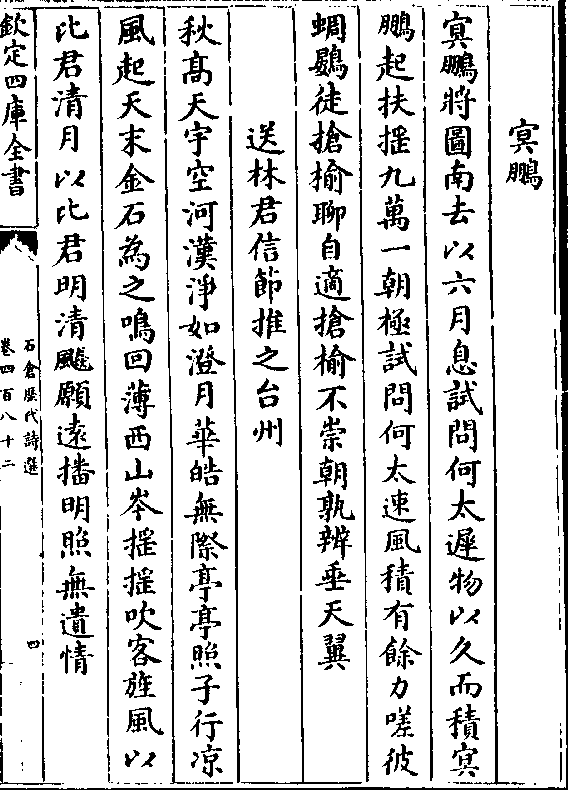 冥鵬
冥鵬將圖南去以六月息試問何太遲物以久而積冥
鵬起扶搖九萬一朝極試問何太速風積有餘力嗟彼
蜩鷃徒搶榆聊自適搶榆不崇朝孰辨垂天翼
送林君信節推之台州
秋髙天宇空河漢淨如澄月華皓無際亭亭照子行凉
風起天末金石為之鳴回薄西山岑摇摇吹客旌風以
比君清月以比君明清飈願遠播明照無遺情
欽定四庫全書
石倉歴代詩選
卷四百八十二
四